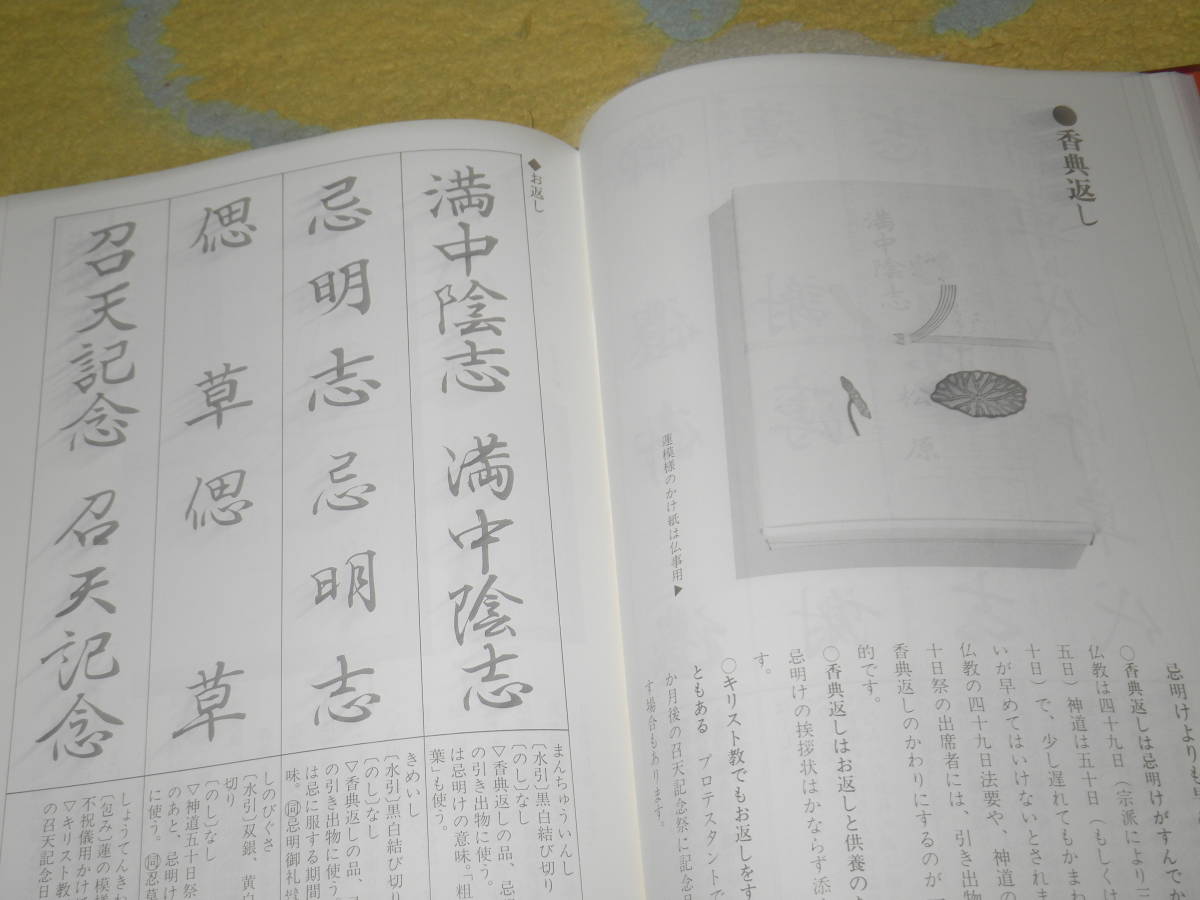 ●香典返し
満中陰志
松原
蓮模様のかけ紙は仏事用▶
忌明けよりも早
○香典返しは忌明けがすんでか
仏教は四十九日（宗派により三
五日）神道は五十日（もしくは
十日）で、少し遅れてもかまわ
いが早めてはいけないとされま
仏教の四十九日法要や、神道の
十日祭の出席者には、引き出物
香典返しのかわりにするのが一
的です。
○香典返しはお返しと供養の
忌明けの挨拶状はかならず添
す。
○キリスト教でもお返しをす
ともある　プロテスタントで
か月後の召天記念祭に記念
す場合もあります。
◆お返し
満中陰志　満中陰志
まんちゅういんし
〔水引〕黒白結び切り
〔のし〕なし
▽香典返しの品、忌
の引き出物に使う。
は忌明けの意味。「粗
葉」も使う。
忌明志　忌明志
きめいし
〔水引〕黒白結び切り
〔のし〕なし
▽香典返しの品、
の引き出物に使う
は忌に服する期間
味。同忌明御礼
偲草　偲草
しのびぐさ
〔水引〕双銀、黄白
切り
〔のし〕なし
▽神道五十日祭
のあと、忌明け
に使う。同忍草
召天記念　召天記念
しょうてんきね
〔包み〕蓮の模様
不祝儀用かけ
▽キリスト教
の召天記念日